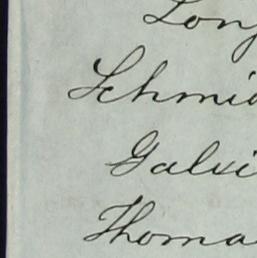 Long
Schmid
Galvi
Thoma